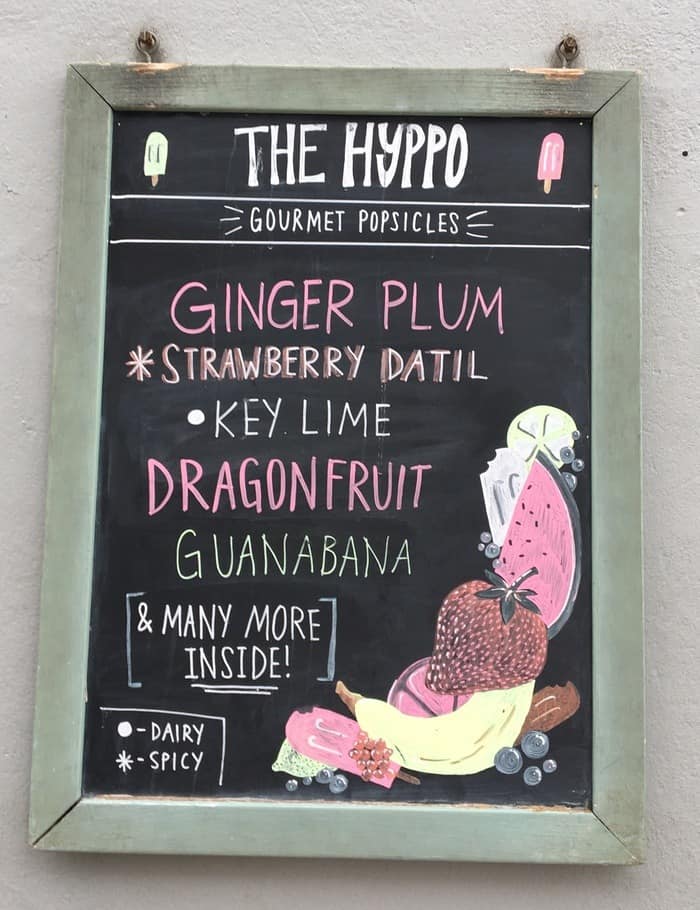 THE HYPPO
GOURMET POPSICLES
GINGER PLUM
*STRAWBERRY DATIL
•KEY LIME
DRAGONFRUIT
GUANABANA
& MANY MORE
INSIDE!
•-DAIRY
*-SPICY